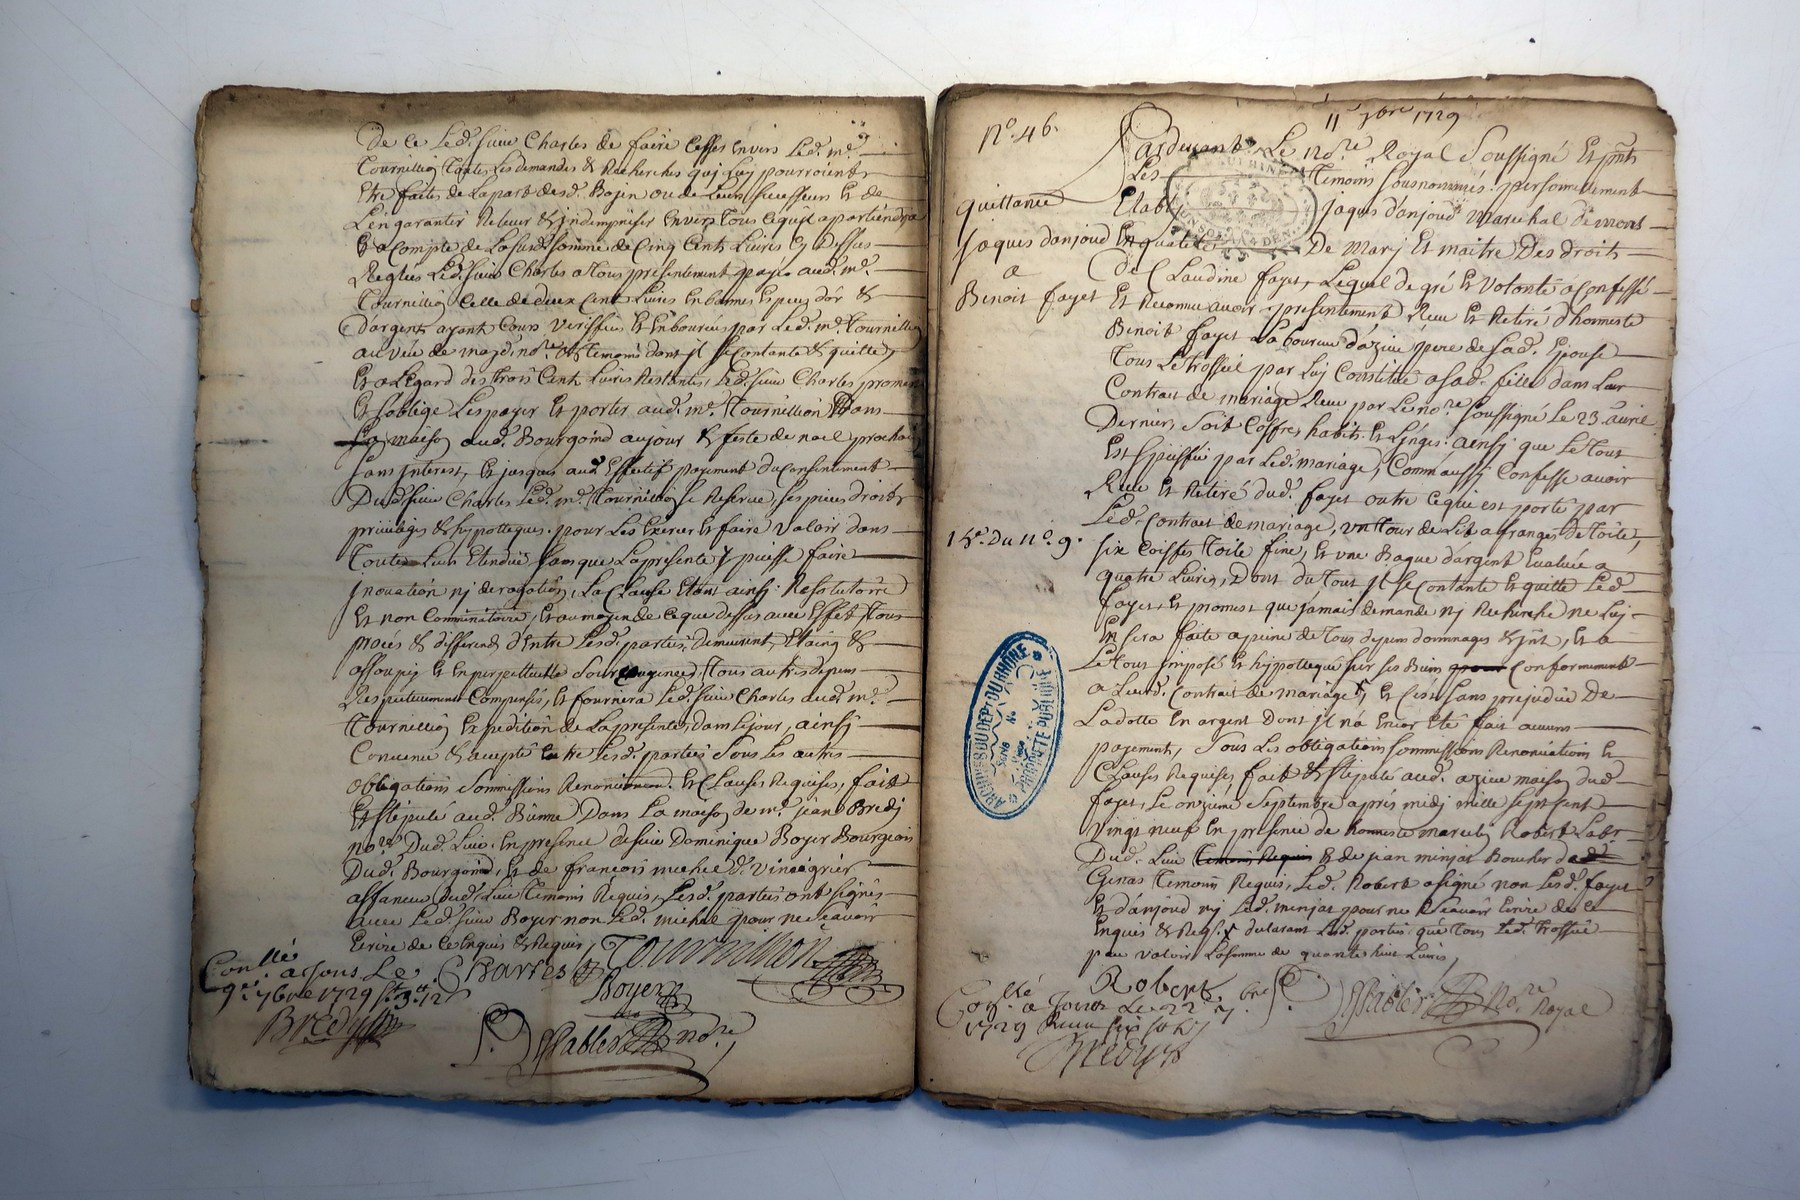 De ce led. sieur Charles de faire cesser envers led. me.
Tournillion toutes les demandes & Recherches qui luy pourroient
Etre faites de la part desd. Bozin ou de leurs successeurs Et de
L'en garantir Relever & jndempniser Envers tous ce qu'il apartiendra
Et a compte de la susd. somme de Cinq Cents Livres cy dessus
Reglées Led. sieur Charles a tous presentement payé aud. me.
Tournillion Celle de deux Cent Livres En bonnes Especes d'or &
D'argent ayant Cours veriffiées Et Emboursées par Led. me. Tournillion
au veu de moyd. nore. & temoins dont jl se contante & quitte,
Et a L'Egard des Trois Cent Livres Restantes, Led. sieur Charles promet
Et s'oblige Les payer Et porter aud. me. Tournillion Dans
sa maison aud. Bourgoind au jour & feste de noel prochain
sans jnterest, Et jusques aux Effectif payement du consentement
Dud. sieur Charles Led. me. Tournillion se Reserve, ses pieces droits
privileges & hypotteques, pour Les Exercer Et faire valoir dans
Toute Leur Etendue sans que La presente y puisse faire
jnovation nj derogation, La Clause Etant ainsi Resolutoire
Et non Comminatoire, Et au moyen de ce que dessus avec Effet tous
procés & differends d'Entre Lesd. parties, demeurent Etaint &
assoupis Et En perpetuelle tous autres depens
Respectivement Compensés, Et fournira Led. sieur Charles aud. me.
Tournillion Expedition de La presente, dans Le jour, ainsi
Convenu & accepté Entre Lesd. parties sous Les autres
obligations sommissions Renonciations Et Clauses Requises, fait
Et stipulé aud. Dans La maison de me. jean Bredy
nore. Dud. Lieu, En presence de sieur Dominique Boyer Bourgeois
Dud. Bourgoind, Et de francois michel d. vinaigrier
affaneur Dud. Lieu temoins Requis, Lesd. parties ont signés
avec Led. sieur Boyer non Led. michel pour ne sçavoir
Ecrire de ce Enquis & Requis,
Charles
Tournillon
Boyer
Conllé
a Jons Le
9e. 7bre 1729
Bredy
Sablier nore.
No. 46.
11e 7bre 1729
Pardevant Le nore. Royal soussigné Et pnts
Les Temoins sousnommés personnellement
Etabli jaques danjoud marechal de mons
En qualité De Mary Et maitre Des droits
De Claudine fayet, Lequel de gré Et volonté a confessé
Et Reconnu avoir presentement Reçu Et Retiré d'honneste
Benoit fayet Laboureur d'azieu pere de sad. Epouse
Tous Le trosseil par Luy Constitué a sad. fille dans Leur
Contrat de mariage Reçu par Le nore. soussigné Le 23 avril
Dernier, soit Coffre, habits Et Linges. ainsy que Le tout
Est spiffié par Led. mariage, Comm'aussy Confesse avoir
Reçu Et Retiré dud. fayet outre ce qui est porté par
Led. Contrat de mariage, un tour de Lit a franges de toile,
six Coiffes toile fine, Et une Bague d'argent Evaluée a
quatre Livres, Dont du tout jl se contante Et quitte Led.
fayet, Et promet que jamais demande nj Recherche ne Luy
En sera faite a peine de tous depens dommages & jnt, Et a
Le tous jmposé Et hypotteque sur ses Biens conformement
a Leurd. Contrat de mariage, Et C'est sans prejudice De
La dotte En argent Dont jl n'a Encor Eté fait aucuns
payement, sous Les obligations sommissions Renonciations Et
Clauses Requises fait & stipulé aud. azieu maison dud.
fayet, Le onzieme septembre aprés midj mille septcent
vingt neuf En presence de honneste marcely Robert Labr
Dud. Lieu temoins Requis & de jean minjat Boucher de
Genas temoins Requis, Led. Robert a signé non Lesd. fayet
Et danjoud nj Led. minjat pour ne sçavoir Ecrire de ce
Enquis & Req. declarant Lesd. parties que tous Led. trosseil
peu valoir La somme de quarte huit Livres,
Robert
Sablier nore Royal
Conllé a Jons Le 22 7bre
1729 Reçu six sols
Bredy
quittance
jaques danjoud
a
Benoit fayet
15e. Du no. 9.
ARCHIVES DU DEPT DU RHÔNE
PROPRIÉTÉ PUBLIQUE